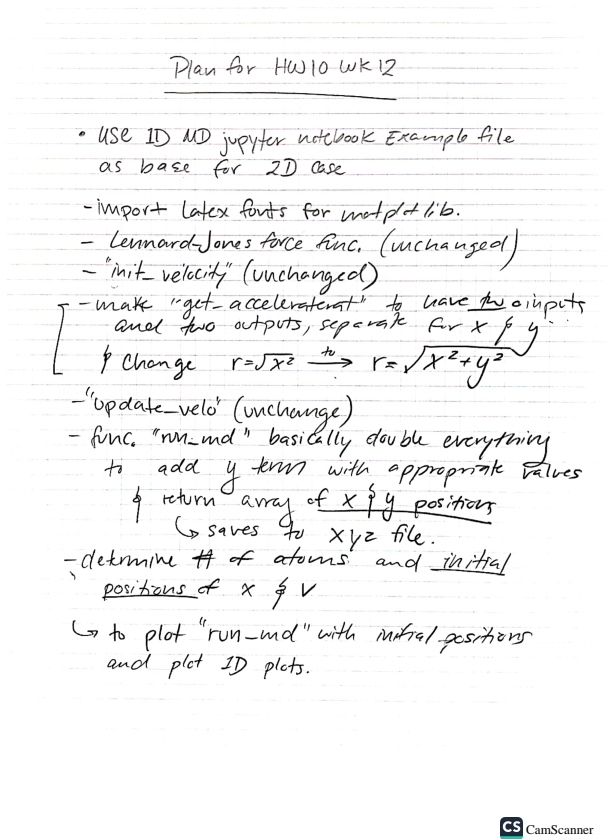 Plan for HW10 WK12
• USE 1D MD jupyter notebook Example file
as base for 2D case
- import latex fonts for matplotlib.
- Lennard-Jones force func. (unchanged)
- "init_velocity" (unchanged)
- make "get_acceleraterat" to have two inputs
and two outputs, separate for x & y
& change r=√x² to → r=√x²+y²
- "update_velo" (unchange)
- func. "run_md" basically double everything
to add y term with appropriate values
& return array of x & y positions
↳ saves to xyz file.
- detrmine # of atoms and initial
positions of x & v
↳ to plot "run_md" with initial positions
and plot 1D plots.
CS CamScanner